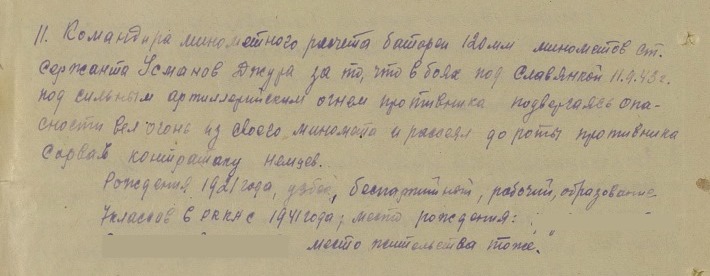 11. Командира минометного расчета батареи 120 мм минометов ст.
Сержанта Усманов Джура за то, что в боях под Славянкой 11.9.43 г.
под сильным артиллерийским огнем противника подвергаясь опа-
сности вел огонь из своего миномета и рассеял до роты противника
сорвав контратаку немцев.
Рождения 1921 года, узбек, беспартийный, рабочий, образование
7 классов в РККА с 1941 года, место рождения:
место жительства тоже."